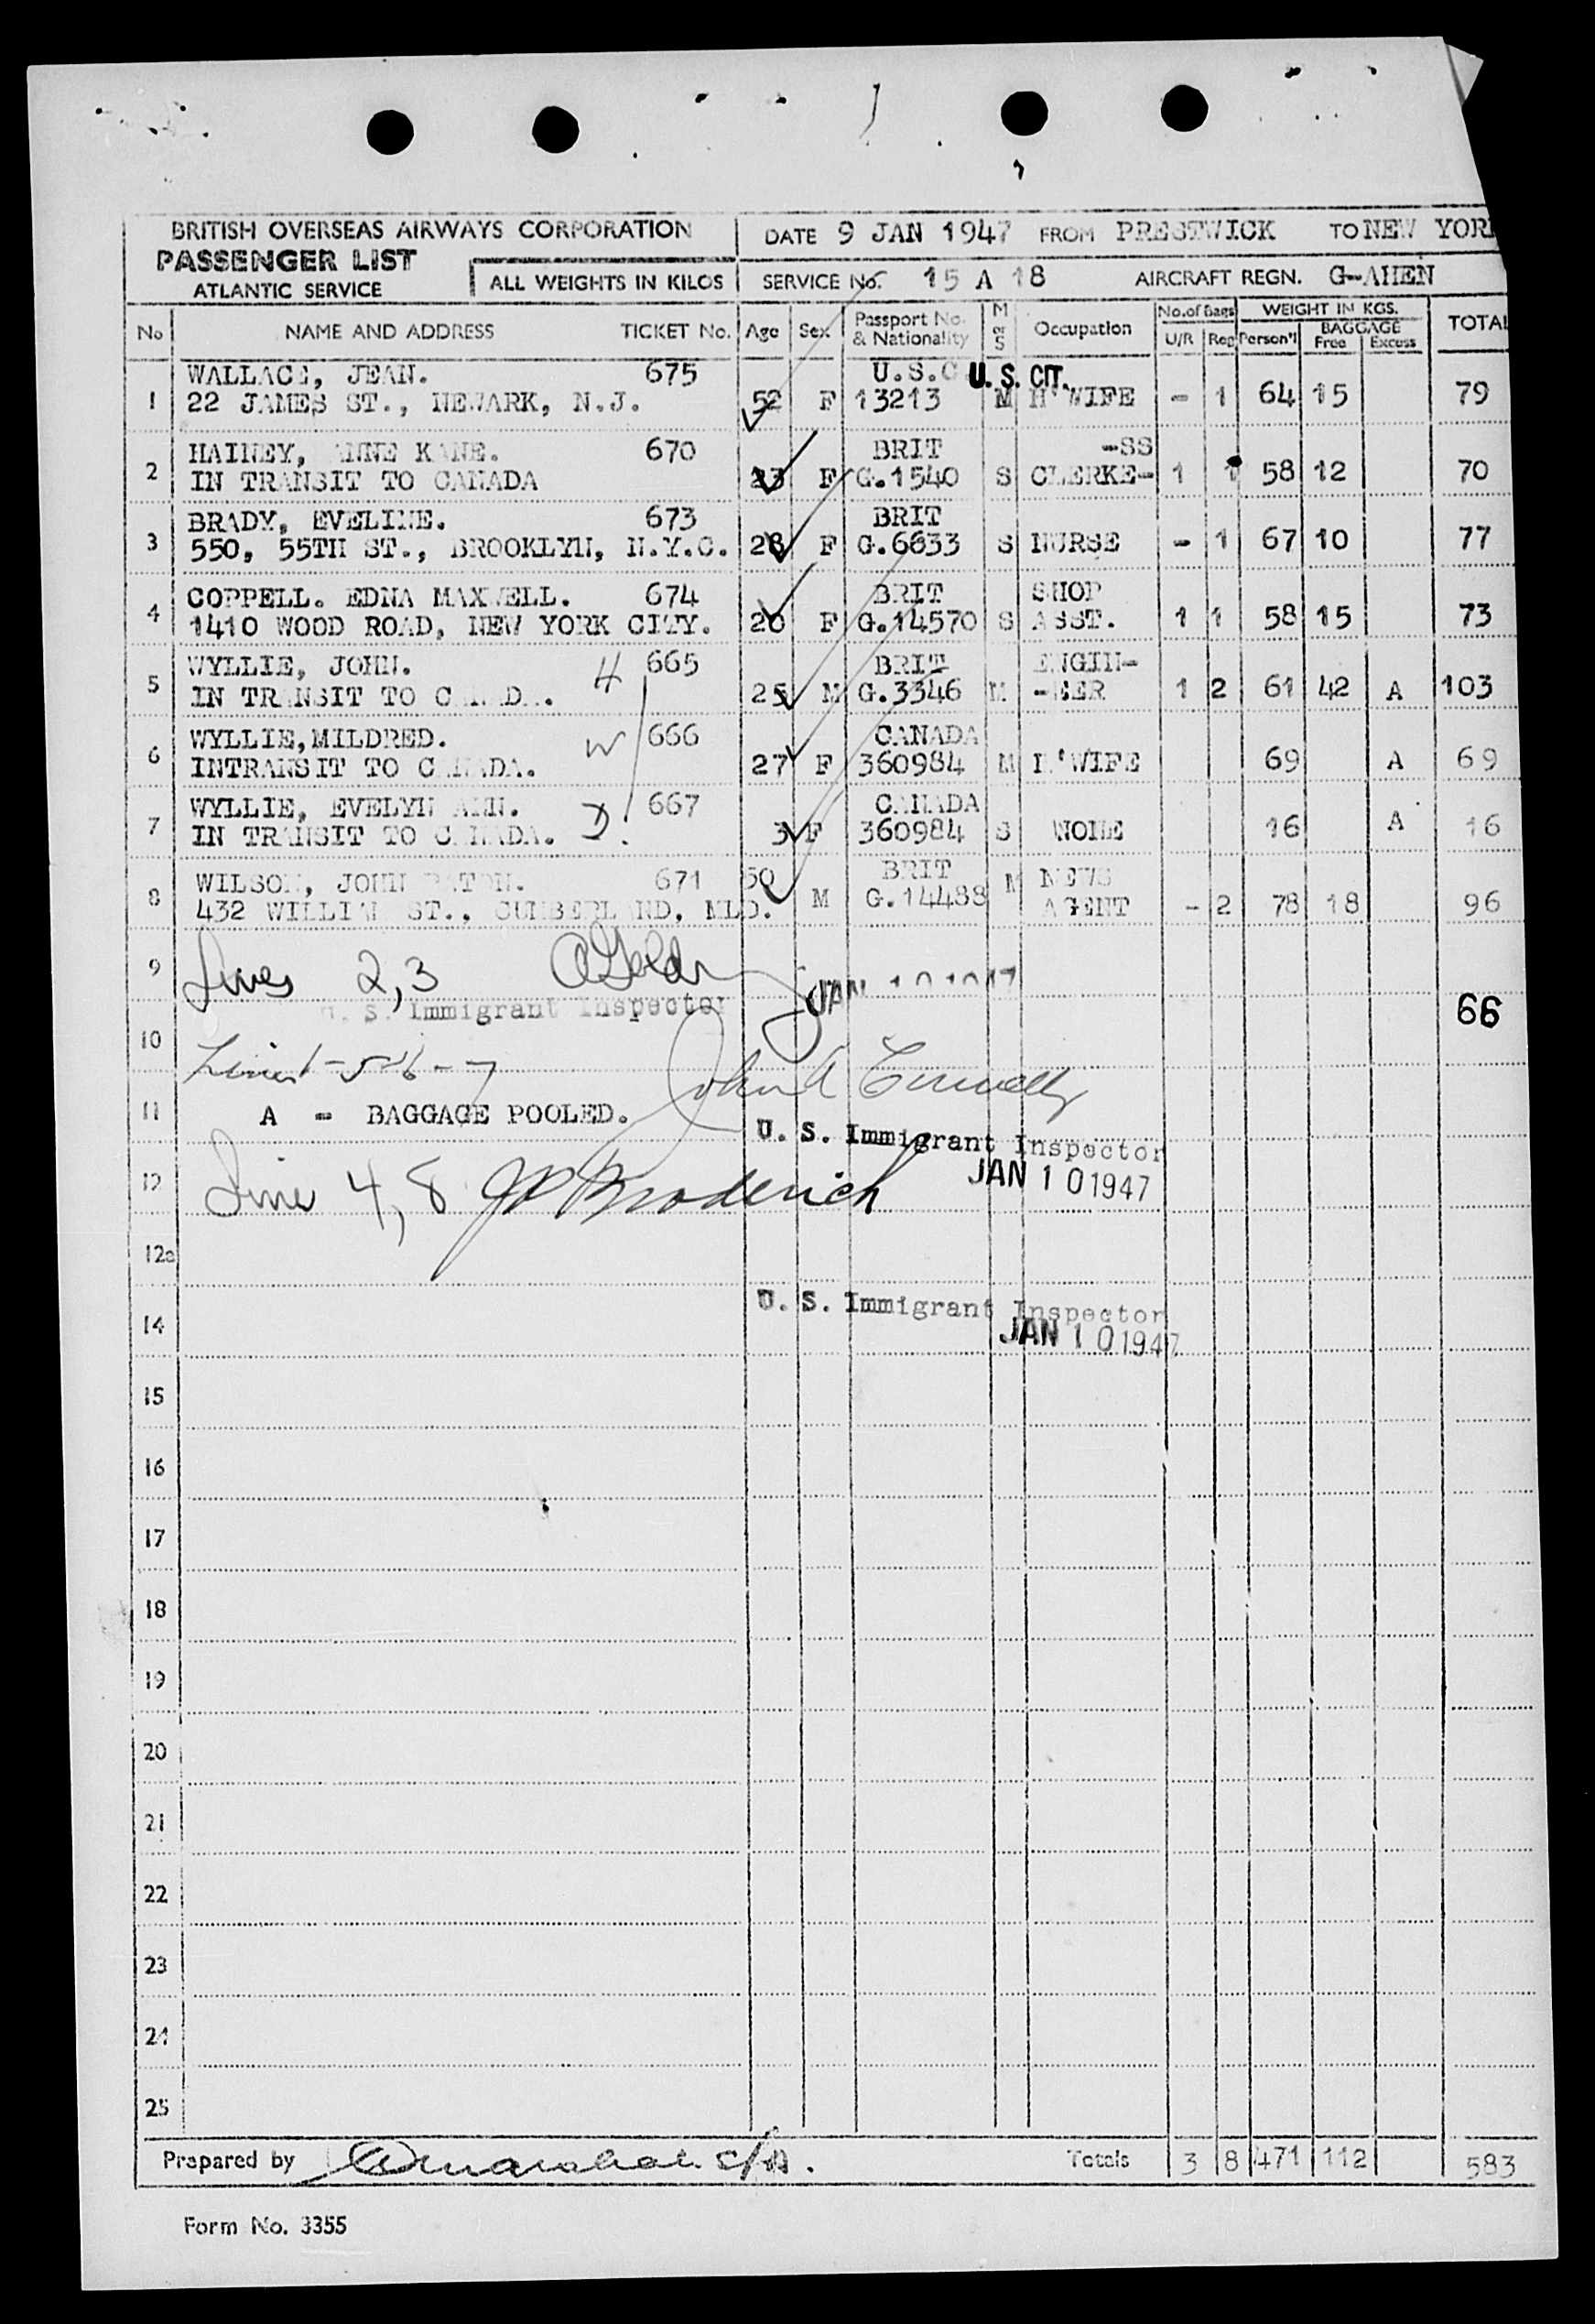 BRITISH OVERSEAS AIRWAYS CORPORATION
PASSENGER LIST
ATLANTIC SERVICE
ALL WEIGHTS IN KILOS
DATE 9 JAN 1947 FROM PRESTWICK TO NEW YORK
SERVICE No. 15 A 18 AIRCRAFT REGN. G-AHEN
No NAME AND ADDRESS TICKET No. Age Sex Passport No. & Nationality M or S Occupation No. of Bags U/R Reg WEIGHT IN KGS. Person'l BAGGAGE Free Excess TOTAL
WALLACE, JEAN. 675 U.S.C U.S. CIT.
1 22 JAMES ST., NEWARK, N.J. 52 F 13213 M H'WIFE - 1 64 15 79
HAINEY, ANNE KANE. 670 BRIT -SS
2 IN TRANSIT TO CANADA 23 F G.1540 S CLERKE- 1 1 58 12 70
BRADY, EVELINE. 673 BRIT
3 550, 55TH ST., BROOKLYN, N.Y.C. 28 F G.6633 S NURSE - 1 67 10 77
COPPELL. EDNA MAXWELL. 674 BRIT SHOP
4 1410 WOOD ROAD, NEW YORK CITY. 20 F G.14570 S ASST. 1 1 58 15 73
WYLLIE, JOHN. H 665 BRIT ENGIN-
5 IN TRANSIT TO CANADA. 25 M G.3346 M -EER 1 2 61 42 A 103
WYLLIE,MILDRED. W 666 CANADA
6 INTRANSIT TO CANADA. 27 F 360984 M H'WIFE 69 A 69
WYLLIE, EVELYN ANN. D. 667 CANADA
7 IN TRANSIT TO CANADA. 3 F 360984 S NONE 16 A 16
WILSON, JOHN PATON. 671 50 BRIT M NEWS
8 432 WILLIAM ST., CUMBERLAND, MLD. M G.14488 AGENT - 2 78 18 96
9 Lines 2,3 JAN 10 1947
U. S. Immigrant Inspector 66
10 Lines 1-5-6-7
11 A - BAGGAGE POOLED.
U. S. Immigrant Inspector
JAN 10 1947
12 Line 4, 8 JP Broderick
12a
U. S. Immigrant Inspector
14 JAN 10 1947
15
16
17
18
19
20
21
22
23
24
25
Prepared by Totals 3 8 471 112 583
Form No. 3355